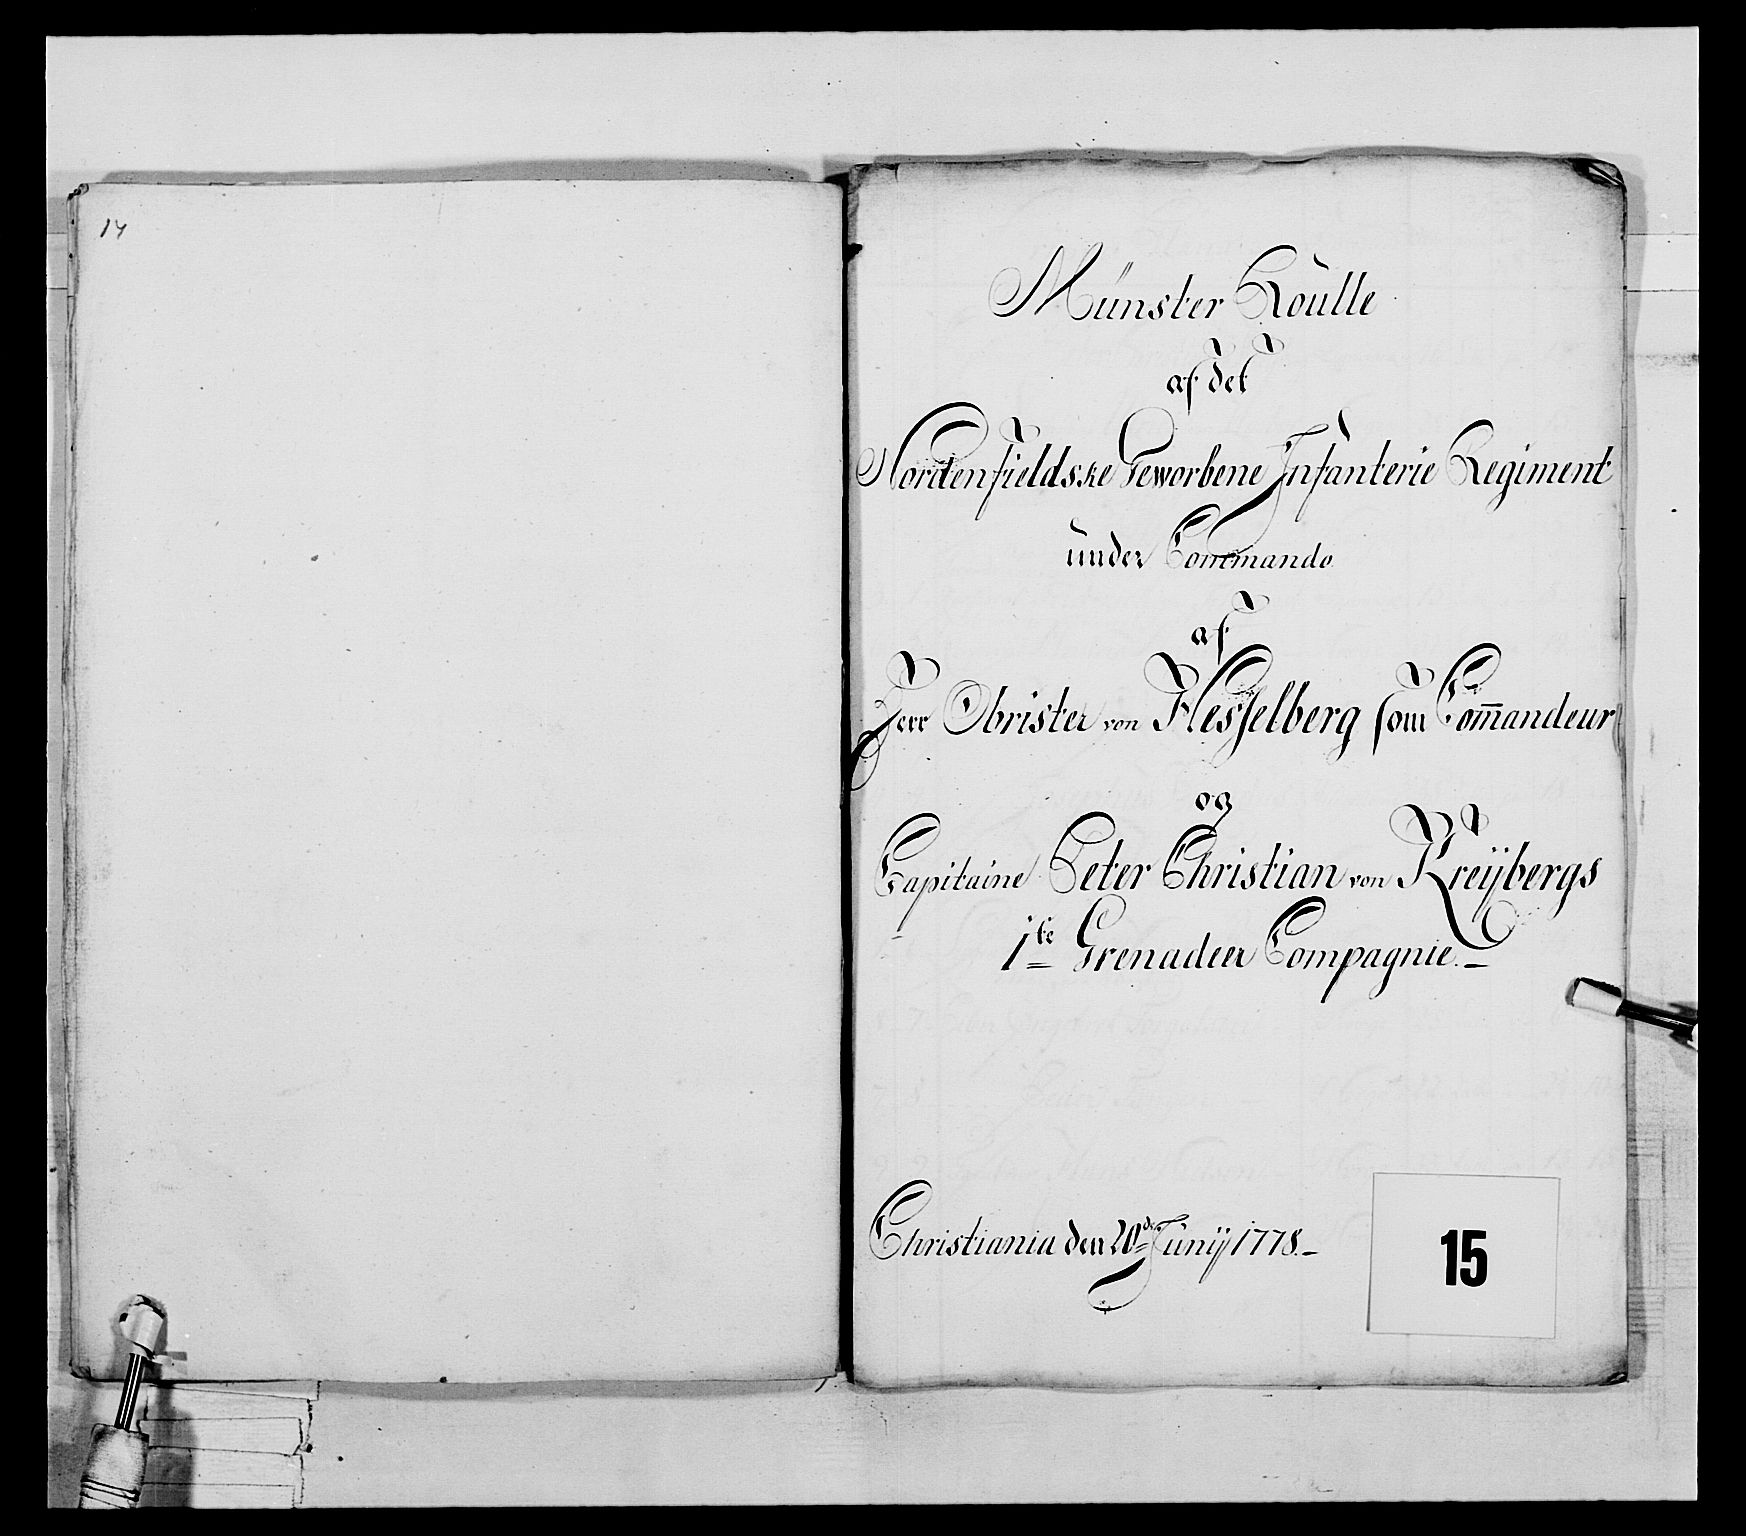 14
Münster Roulle
af det
Nordenfieldske Geworbene Infanterie Regiment
under Commando
af
Herr Obrister von Hesselberg som Com̄andeur
og
Capitaine Peter Christian von Kreÿbergs
1te Grenadeer Compagnie.
Christiania den 20de Junÿ 1778.
15